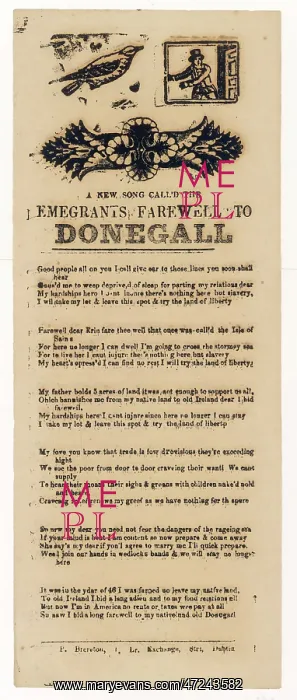 A NEW SONG CALL'D THE
EMEGRANTS FAREWELL TO
DONEGALL
Good people all on you I call give ear to those lines you soon shall
hear
Caus'd me to weep deprived of sleep for parting my relations dear
My hardships here I cant there's nothing here but slavery,
I will make my lot & leave this spot & try the land of liberty
Farewell dear Erin fare thee well that once was call'd the Isle of
Saints
For here no longer I can dwell I'm going to cross the stormy sea
For to live her I cant injure there's nothing here but slavery
My heart's opress'd I can find no rest I will try the land of liberty
My father holds 5 acres of land it was not enough to support us all,
Which banishes me from my native land to old Ireland dear I bid
farewell,
My hardships here I cant injure since here no longer I can stay
I make my lot & leave this spot & try the land of liberty
My love you know that trade is low provisions they're exceeding
hight
We see the poor from door to door craveing their want We cant
supply
To hear their their sighs & greans with children naked
cold
Craveing my greef as we have nothing for there
So now my dear you need not fear the dangers of the rageing sea
If your mind is content as now prepare & come away
She say's my dear if you'l agree to marry me I'll quick prepare
We'll join our hands in wedlock's bands & we will stay no longer
here
It was in the year of 46 I was forced to leave my native land,
To old Ireland I bid a long adieu and to my fond relations all
But now I'm in America no rents or taxes we pay at all
So now I bid a long farewell to my native and old Donegall
P. Brereton, 1, Lr. Exchange, Stri, Dublin
ME
PL
ME
PL
www.maryevans.com/47243582